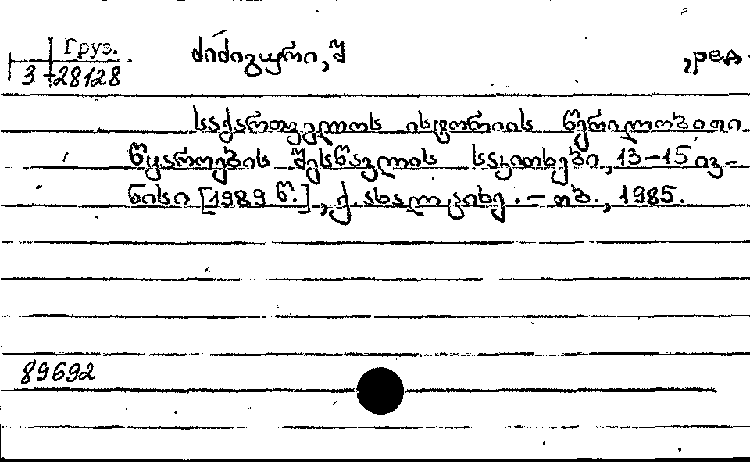 Груз.
3-28128
ძიძიგური, შ , ред.
საქართველოს ისტორიის წერილობითი
წყაროების შესწავლის საკითხები, 13-15 ივ-
ნისი [1989 წ.], ქ. ახალციხე. - თბ., 1985.
89692